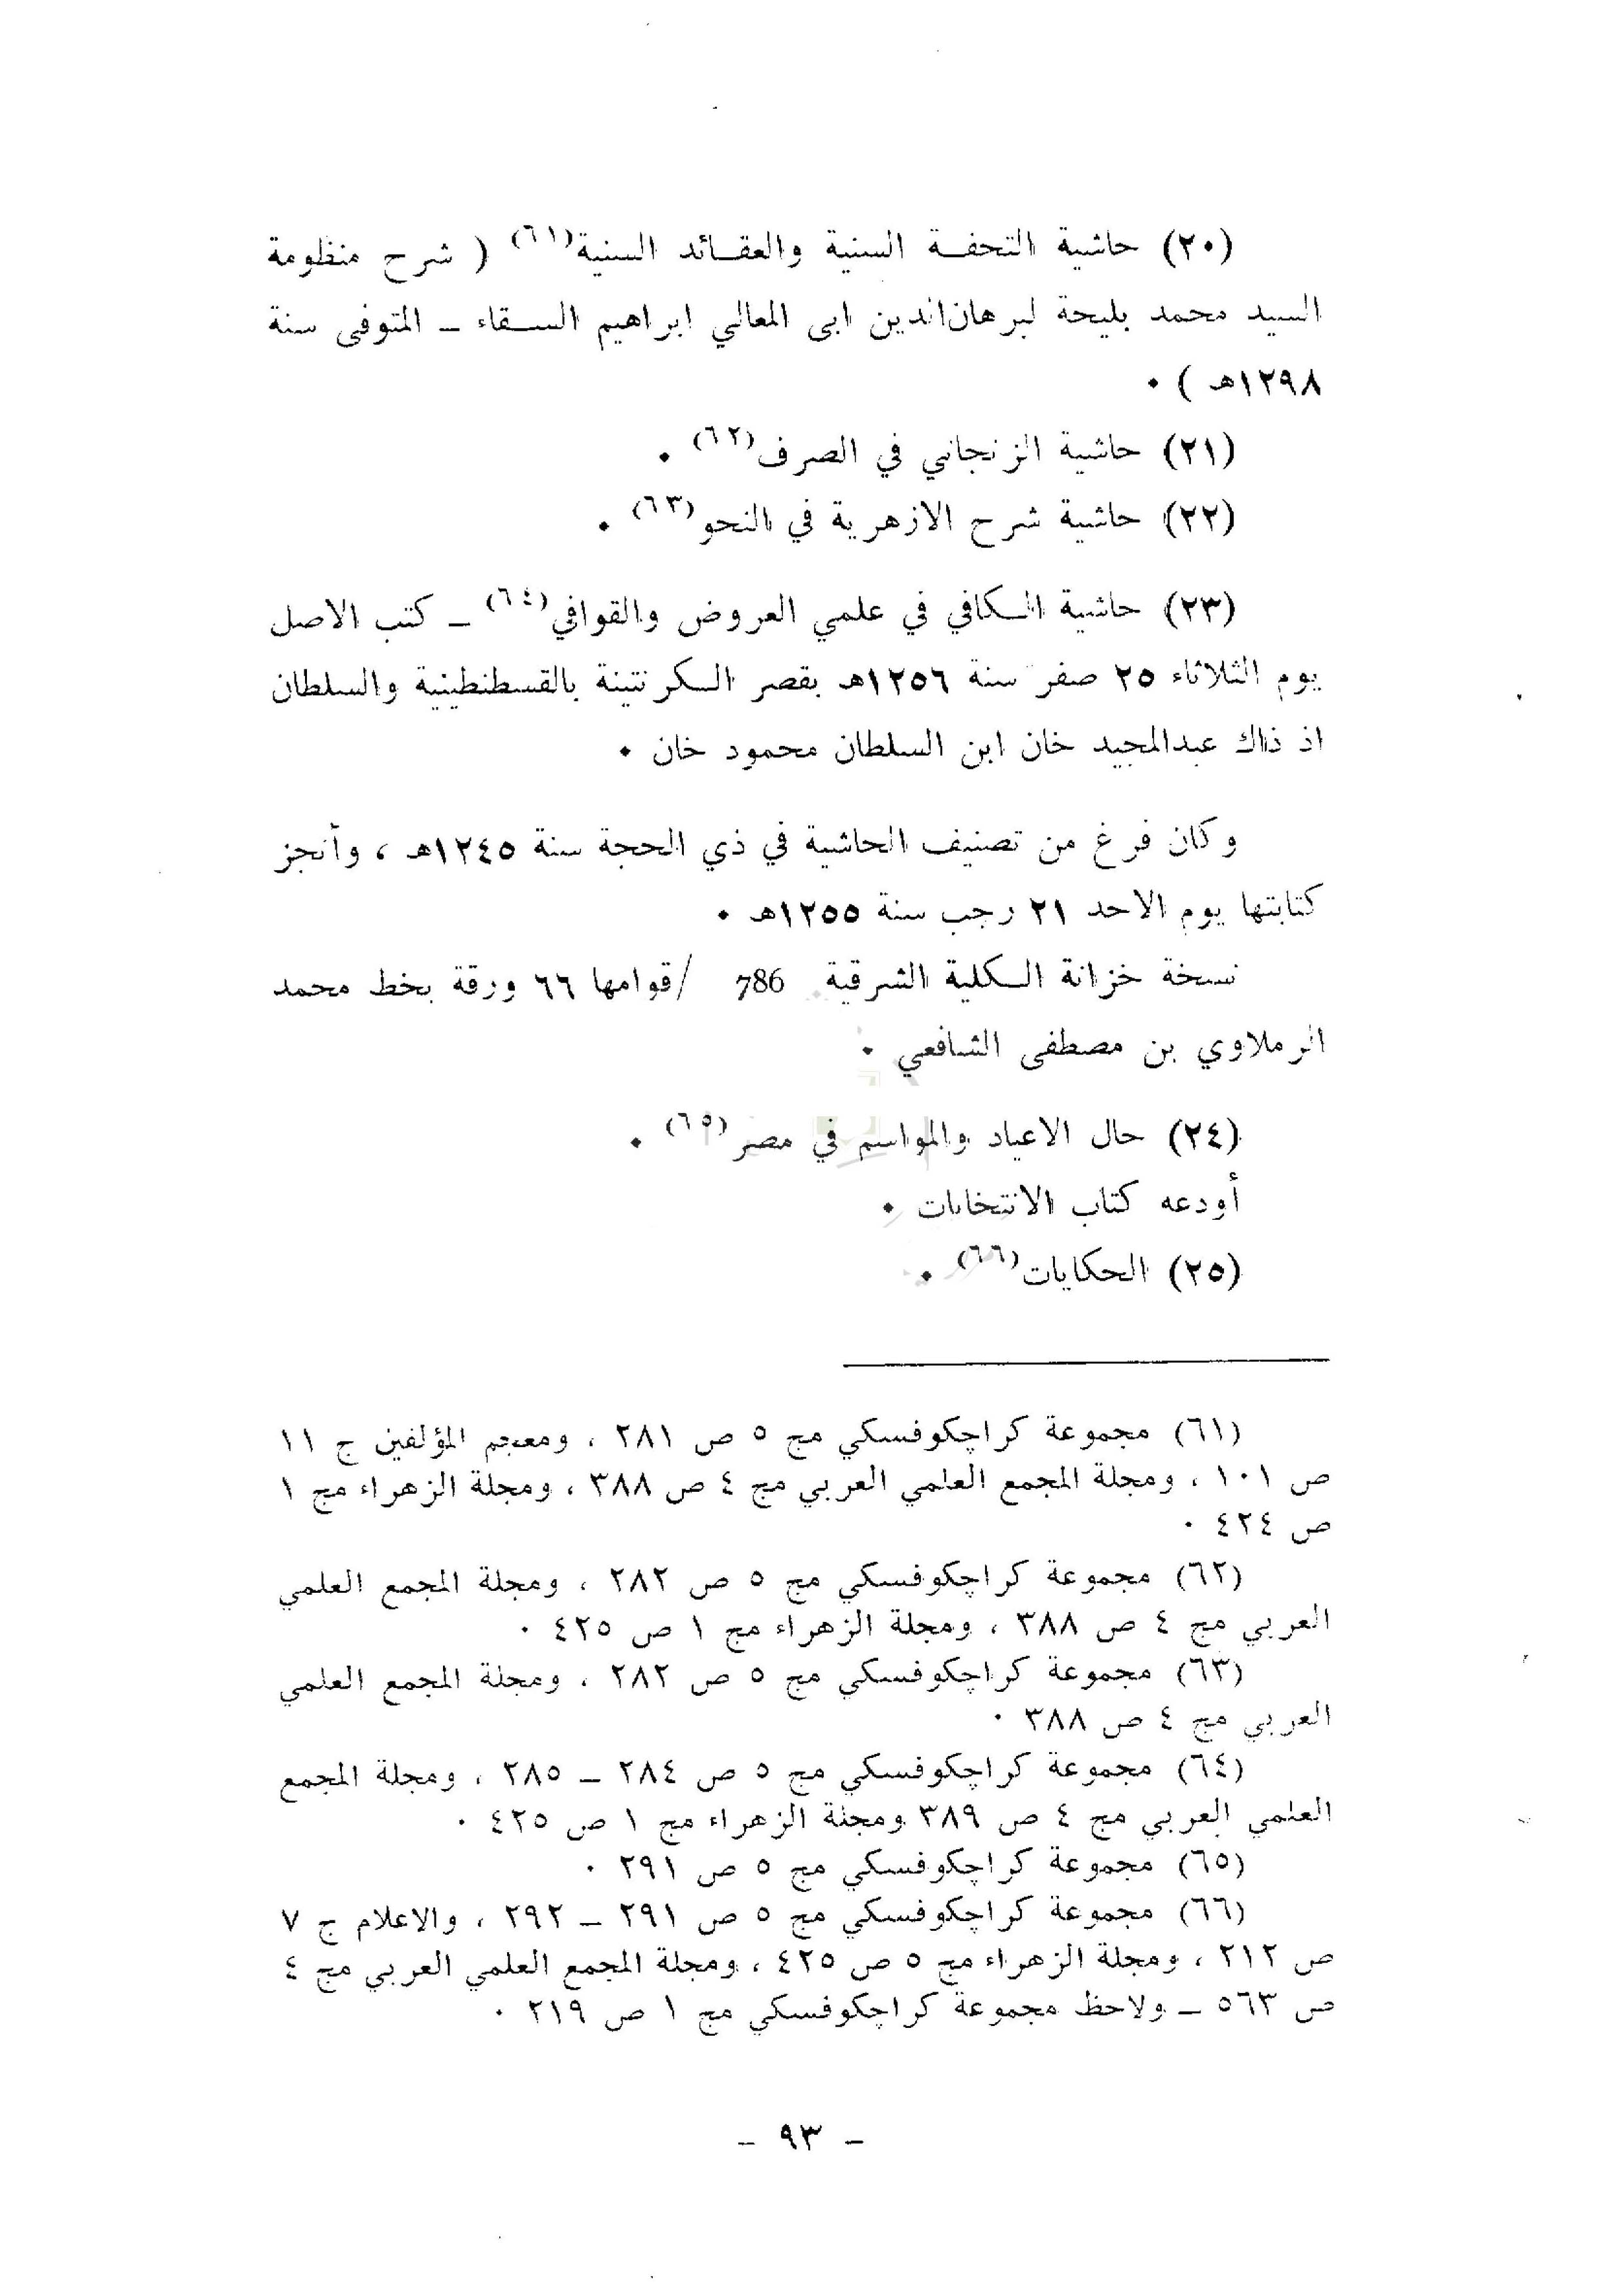 (٢٠) حاشية التحفة السنية والعقائد السنية(٦١) ( شرح منظومة
السيد محمد بليحة لبرهان‌الدين ابى المعالي ابراهيم السقاء ــ المتوفى سنة
١٢٩٨هـ ) ٠
(٢١) حاشية الزنجاني في الصرف(٦٢) ٠
(٢٢) حاشية شرح الازهرية في النحو(٦٣) ٠
(٢٣) حاشية الكافي في علمي العروض والقوافي(٦٤) ــ كتب الاصل
يوم الثلاثاء ٢٥ صفر سنة ١٢٥٦هـ بقصر الكرنتينة بالقسطنطينية والسلطان
اذ ذاك عبدالمجيد خان ابن السلطان محمود خان ٠
وكان فرغ من تصنيف الحاشية في ذي الحجة سنة ١٢٤٥هـ ، وأنجز
كتابتها يوم الاحد ٢١ رجب سنة ١٢٥٥هـ ٠
نسخة خزانة الكلية الشرقية 786 /قوامها ٦٦ ورقة بخط محمد
الرملاوي بن مصطفى الشافعي ٠
(٢٤) حال الاعياد والمواسم في مصر(٦٥) ٠
أودعه كتاب الانتخابات ٠
(٢٥) الحكايات(٦٦) ٠
(٦١) مجموعة كراچكوفسكي مج ٥ ص ٢٨١ ، ومعجم المؤلفين ج ١١
ص ١٠١ ، ومجلة المجمع العلمي العربي مج ٤ ص ٣٨٨ ، ومجلة الزهراء مج ١
ص ٤٢٤ ٠
(٦٢) مجموعة كراچكوفسكي مج ٥ ص ٢٨٢ ، ومجلة المجمع العلمي
العربي مج ٤ ص ٣٨٨ ، ومجلة الزهراء مج ١ ص ٤٢٥ ٠
(٦٣) مجموعة كراچكوفسكي مج ٥ ص ٢٨٢ ، ومجلة المجمع العلمي
العربي مج ٤ ص ٣٨٨ ٠
(٦٤) مجموعة كراچكوفسكي مج ٥ ص ٢٨٤ ــ ٢٨٥ ، ومجلة المجمع
العلمي العربي مج ٤ ص ٣٨٩ ومجلة الزهراء مج ١ ص ٤٢٥ ٠
(٦٥) مجموعة كراچكوفسكي مج ٥ ص ٢٩١ ٠
(٦٦) مجموعة كراچكوفسكي مج ٥ ص ٢٩١ ــ ٢٩٢ ، والاعلام ج ٧
ص ٢١٢ ، ومجلة الزهراء مج ٥ ص ٤٢٥ ، ومجلة المجمع العلمي العربي مج ٤
ص ٥٦٣ ــ ولاحظ مجموعة كراچكوفسكي مج ١ ص ٢١٩ ٠
ــ ٩٣ ــ